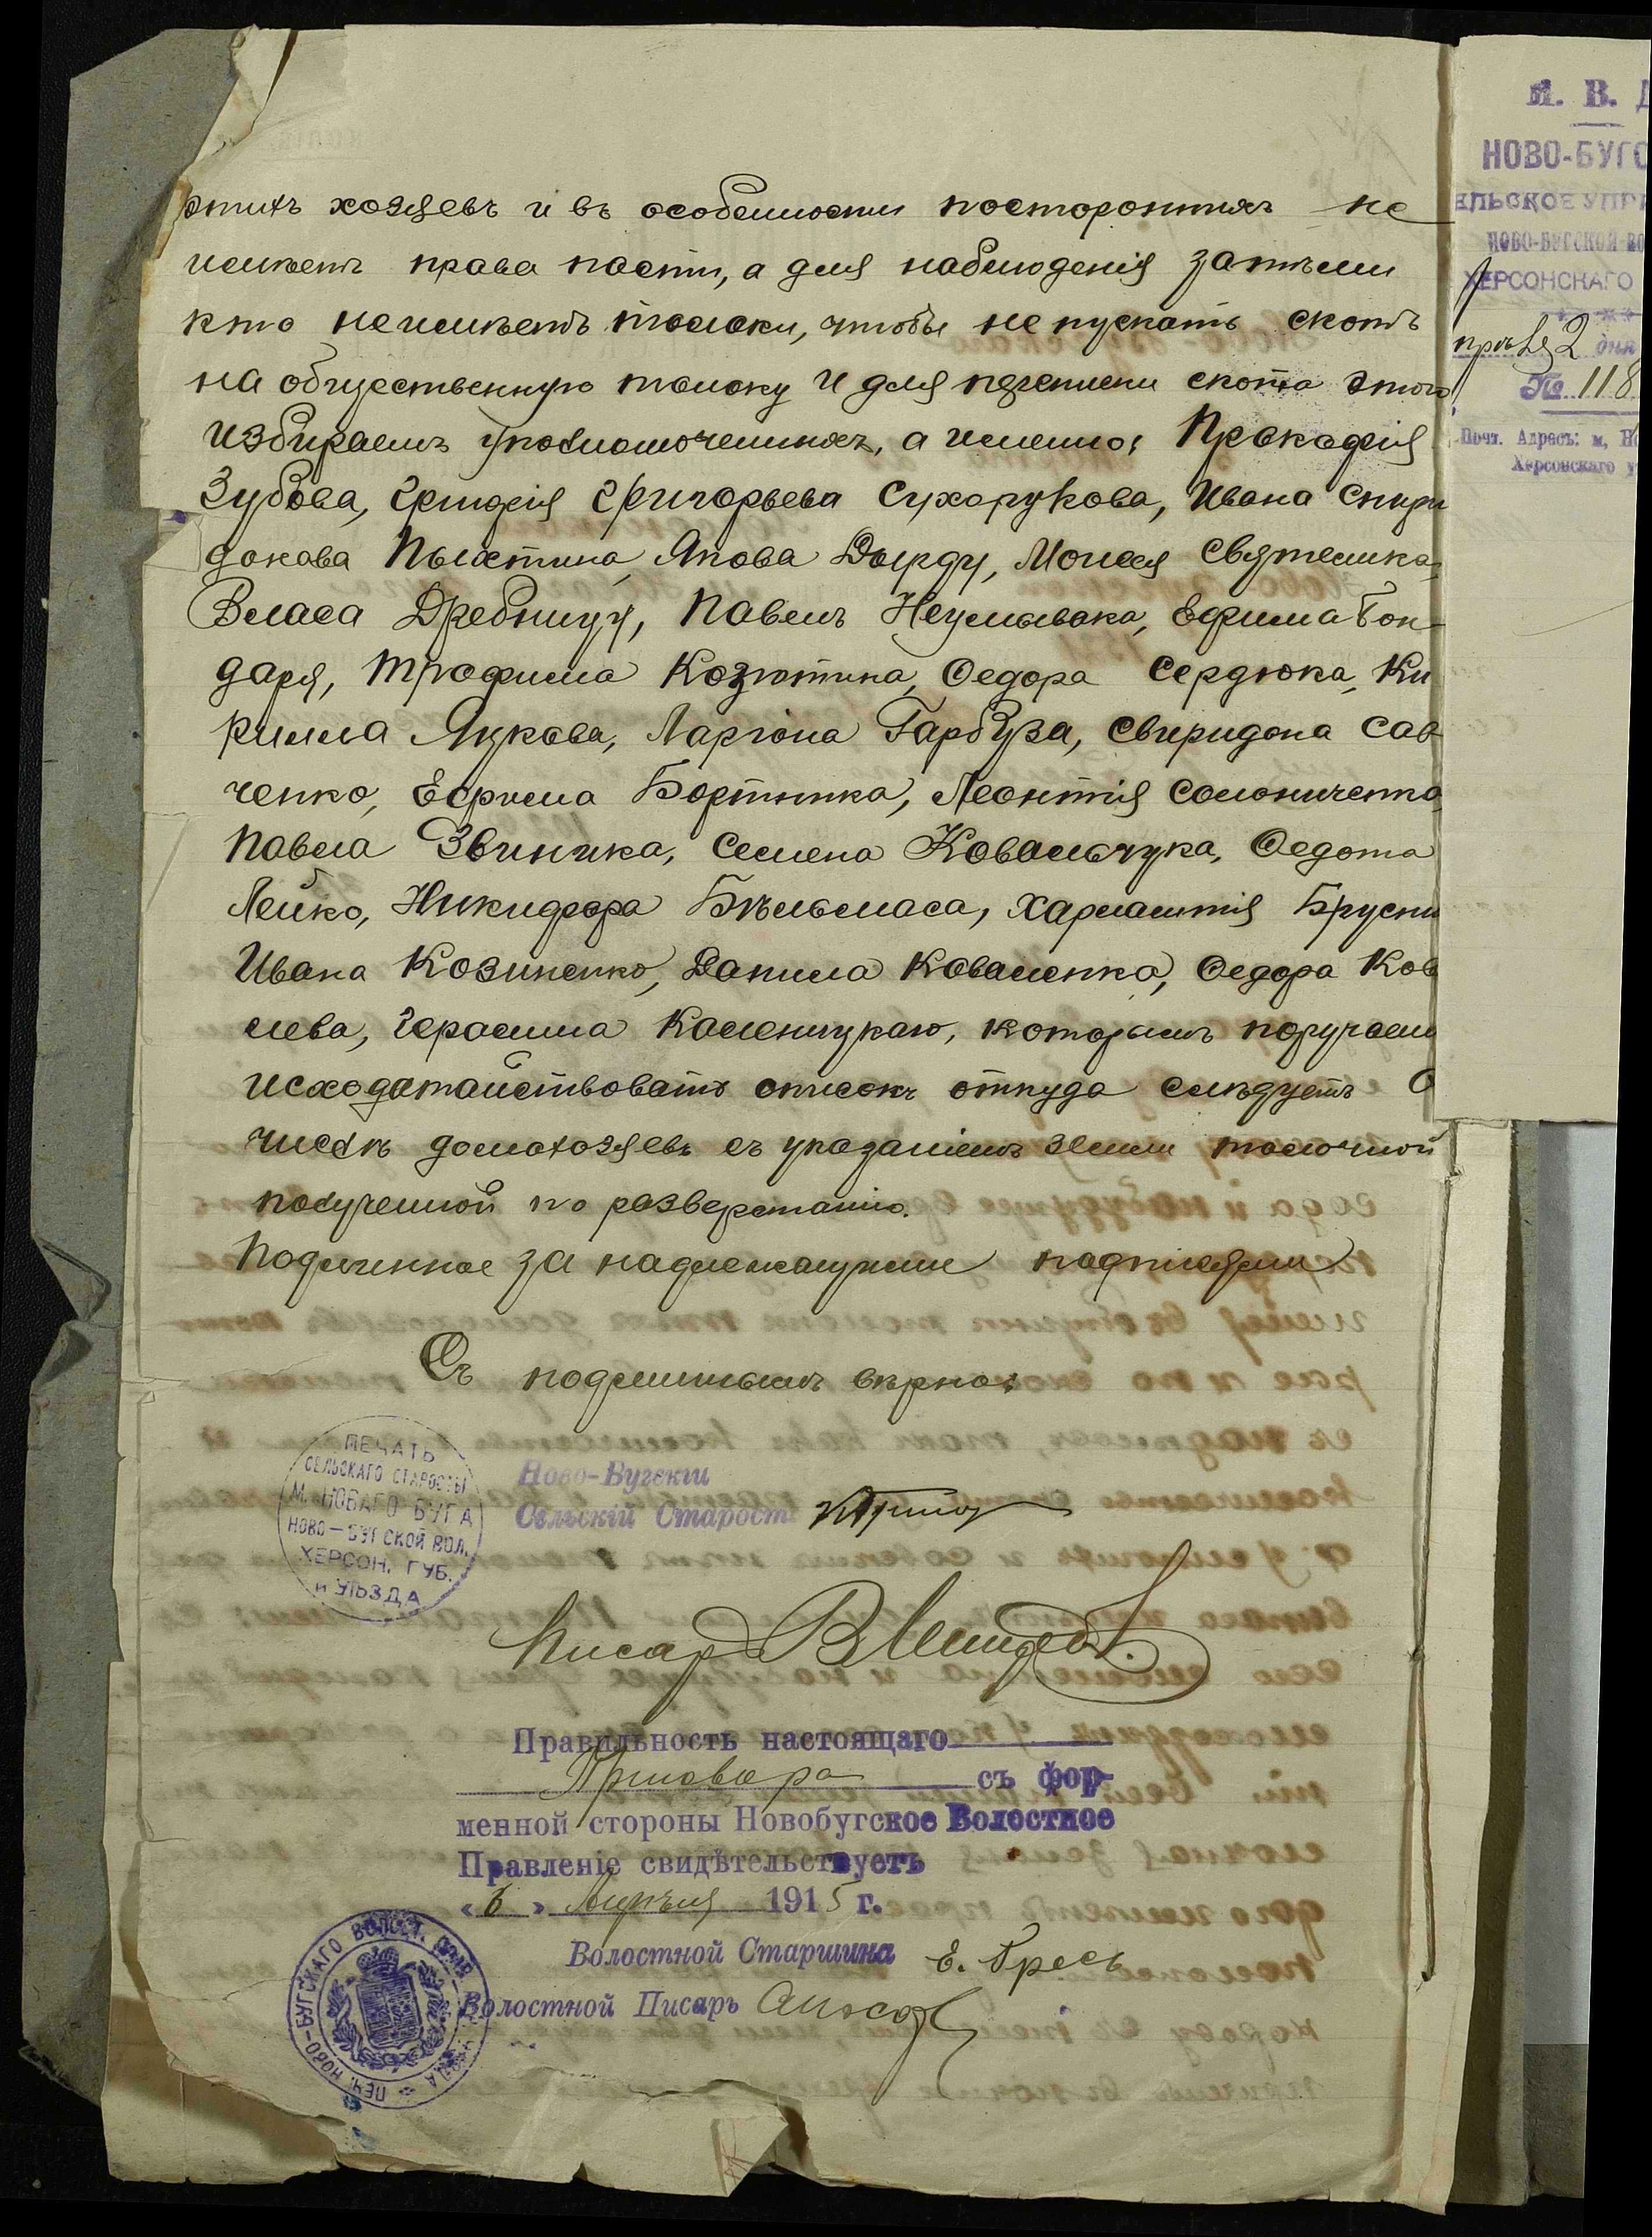 этихъ хозяевъ и въ особенности постороннихъ не
имѣетъ права пасти, а для наблюденія затѣмъ
кто неимѣетъ толоки, чтобы не пускать скотъ
на общественную толоку и для скота этого
избираемъ уполномоченныхъ, а именно: Прокофія
Зубова, Григорьева Сухорукова, Ивана Спири
донова Пыхтина, Якова Дырду, Моисея
Власа Дребницу, Павелъ Неумывака, Ефима Бон-
даря, Трофима Козютина, Федора Сердюка, Ки
рилла Яцкова, Ларіона Гарбуза, Свиридона Сав
ченко, Ефима Бортника, Леонтія Соломиченко
Павла Звиника, Семена Ковальчука, Федота
Лейко, Никифора Бѣльмаса, Харлампія Брусни
Ивана Козиненко, Данила Коваленка, Федора Ков
лева, Герасима которымъ поручаем
исходатайствовать списокъ откуда слѣдуетъ о
числѣ домохозяевъ съ указаніемъ земли толочной
полученной по разверстанію.
Подлинное за надлежащими подписями
Съ подлиннымъ вѣрно:
ПЕЧАТЬ
СЕЛЬСКАГО СТАРОСТЫ
М. НОВАГО БУГА
НОВО-БУГСКОЙ ВОЛ.
ХЕРСОН. ГУБ.
и УѢЗДА
Ново-Бугскій
Сельскій Староста
Писарь
Правильность настоящаго
Приговора съ фор-
менной стороны Новобугское Волостное
Правленіе свидѣтельствуетъ
«6» Апрѣля 1915 г.
Волостной Старшина Е. Бресь
Волостной Писарь
ПЕЧ. НОВО-БУГСКАГО ВОЛОСТ. ПРАВ.
НОВО-БУГС
ЕЛЬСКОЕ УПР
НОВО-БУГСКОЙ ВО
ХЕРСОНСКАГО
2 дня
№ 118
Почт. Адресъ: м. Н
Херсонскаго у